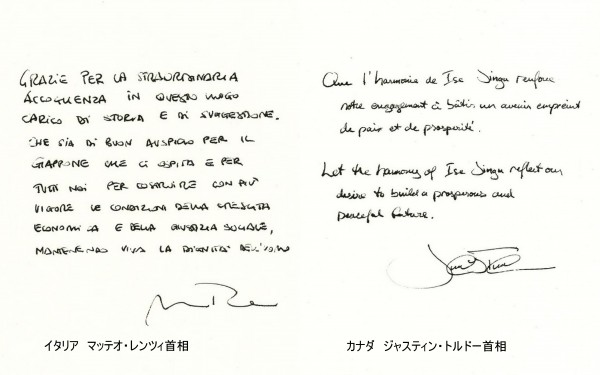 GRAZIE PER LA STRAORDINARIA
ACCOGLIENZA IN QUESTO LUOGO
CARICO DI STORIA E DI SUGGESTIONE.
CHE SIA DI BUON AUSPICIO PER IL
GIAPPONE CHE CI OSPITA E PER
TUTTI NOI PER COSTRUIRE CON PIÙ
VIGORE LE CONDIZIONI DELLA CRESCITA
ECONOMICA E DELLA GIUSTIZIA SOCIALE,
MANTENENDO VIVA LA DIGNITÀ DELL'UOMO
イタリア マッテオ・レンツィ首相
Que l'harmonie de Ise Jingu renforce
notre engagement à bâtir un avenir empreint
de paix et de prospérité.
Let the harmony of Ise Jingu reflect our
desire to build a prosperous and
peaceful future.
カナダ ジャスティン・トルドー首相